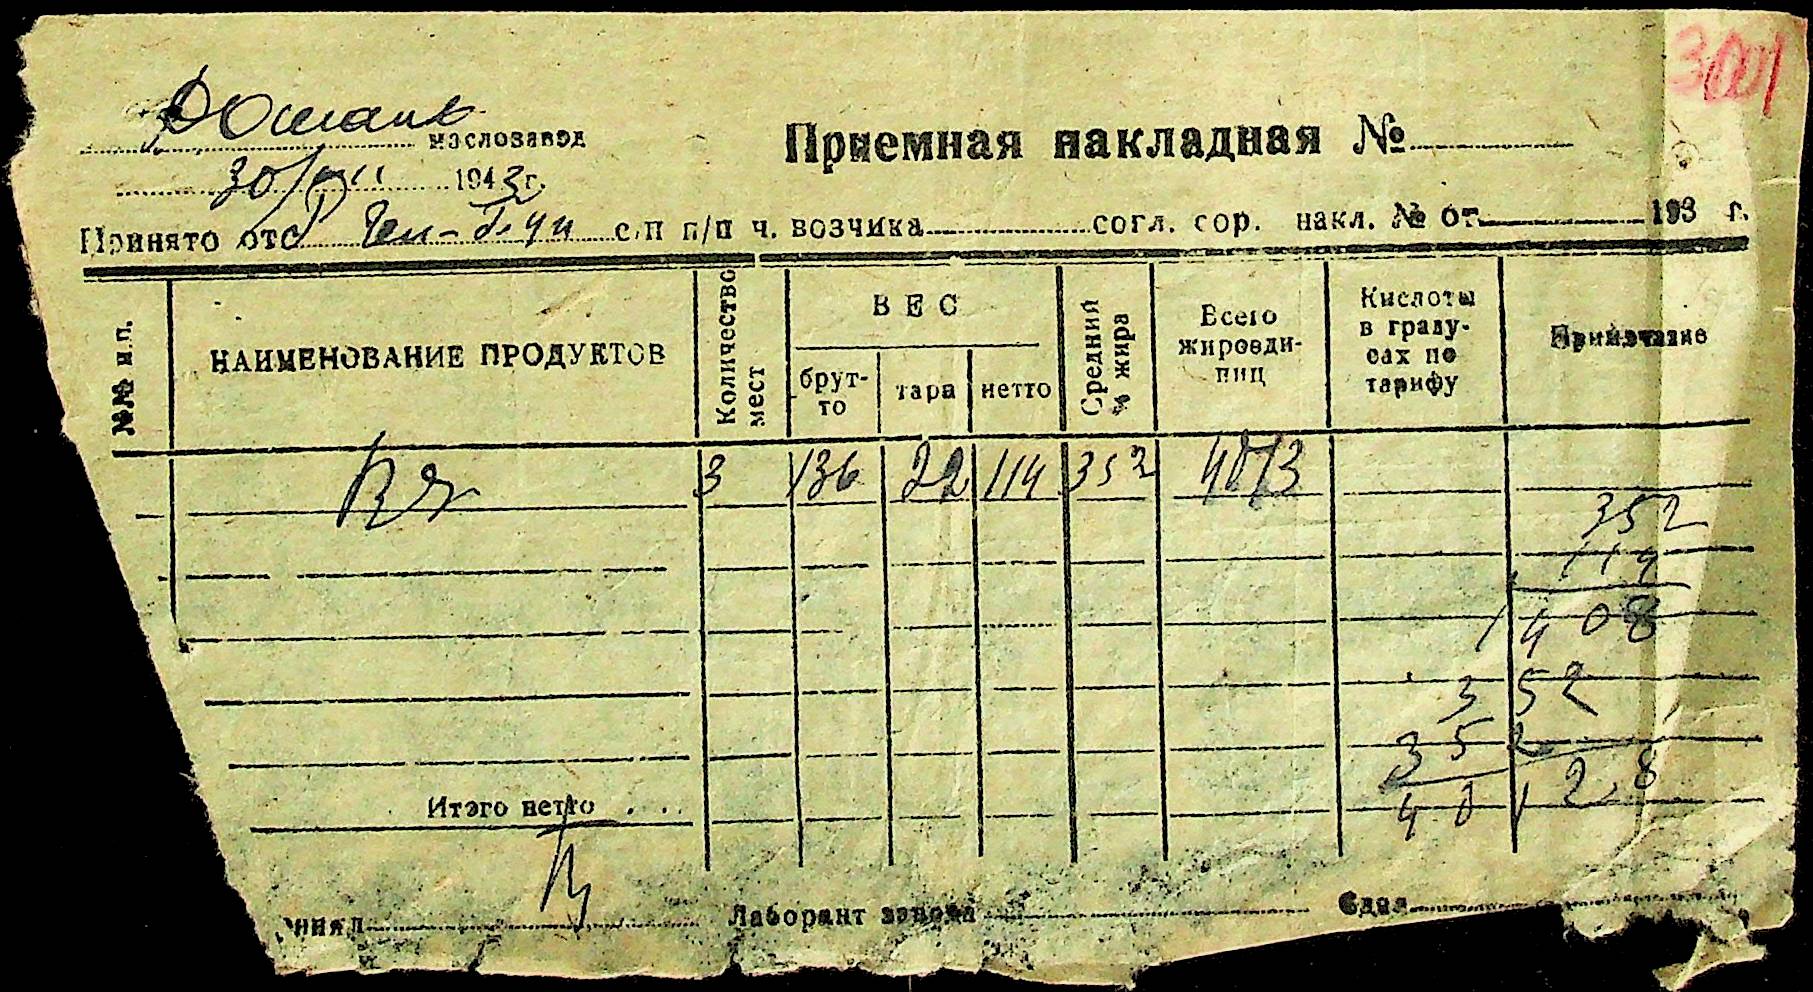 300
маслозавод
Приемная накладная №
30/VIII 1943 г.
Принято от с п п/п ч. возчика согл. сор. накл. № от 193 г.
№№ п.п. НАИМЕНОВАНИЕ ПРОДУКТОВ Количество мест ВЕС брут-то тара нетто Средний % жира Всего жироеди-ниц Кислоты в граду-сах по тарифу Примечание
3 136 22 114 352 4013
352
114
1408
352
352
40128
Итого нетто . . .
инял Лаборант завода Сдал